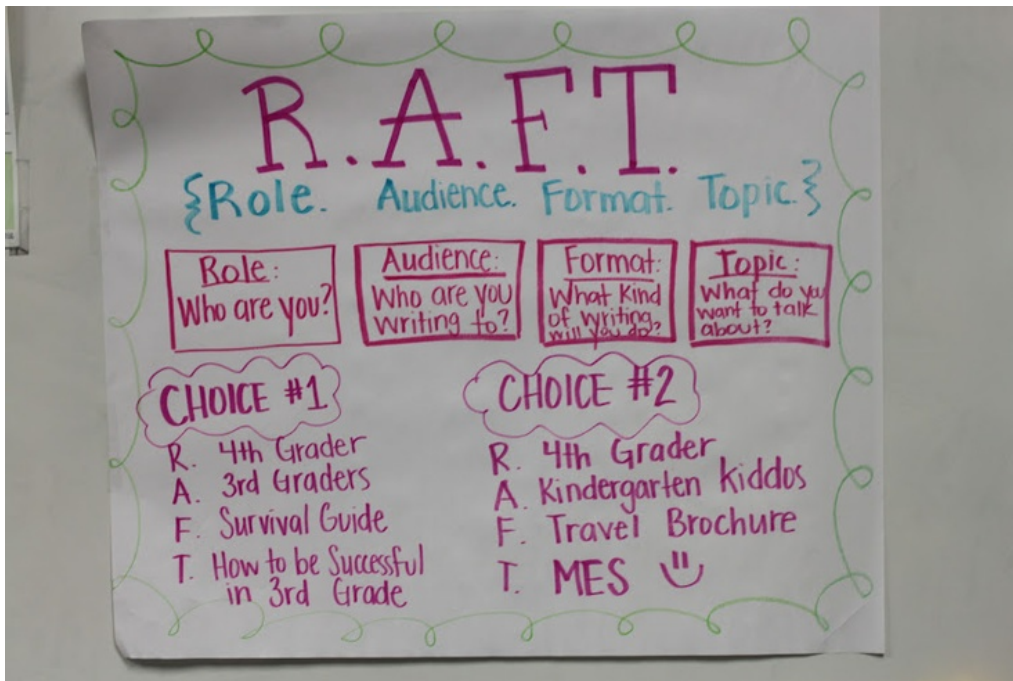 R.A.F.T.
{Role. Audience. Format. Topic.}
Role:
Who are you?
Audience:
Who are you
writing to?
Format:
What Kind
of writing
will you do?
Topic:
What do you
want to talk
about?
CHOICE #1
R. 4th Grader
A. 3rd Graders
F. Survival Guide
T. How to be Successful
in 3rd Grade
CHOICE #2
R. 4th Grader
A. Kindergarten Kiddos
F. Travel Brochure
T. MES